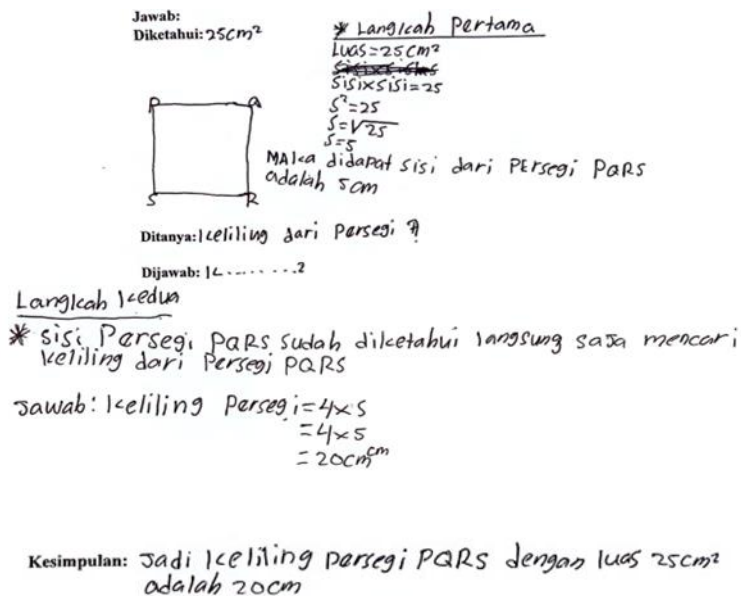 Jawab:
Diketahui: 25cm²
* Langkah Pertama
Luas=25cm²
sisixsisi=25
s²=25
s=√25
s=5
MAka didapat sisi dari Persegi PQRS
adalah 5cm
P Q
S R
Ditanya: keliling dari Persegi ?
Dijawab: K........?
Langkah kedua
* sisi Persegi PQRS sudah diketahui langsung saja mencari
keliling dari Persegi PQRS
Jawab: keliling Persegi=4×s
=4×5
=20cm cm
Kesimpulan: Jadi keliling persegi PQRS dengan luas 25cm²
adalah 20cm